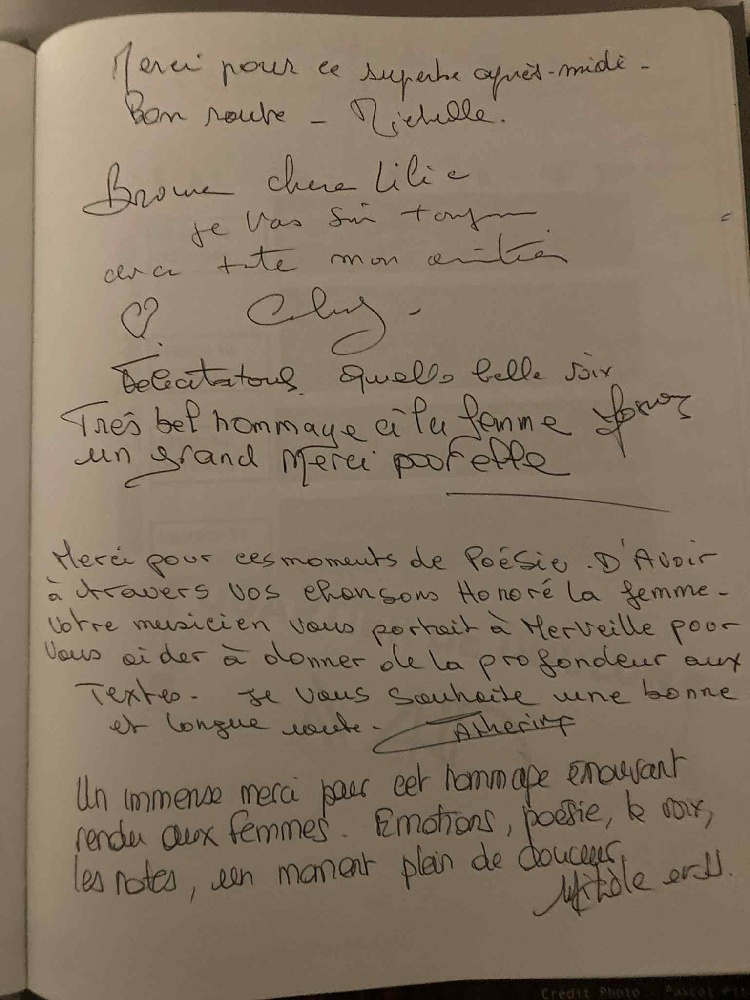 Merci pour ce superbe après-midi -
Bon route - Michelle.
chere Lilie
je
mon amitié
Quelle belle voix
Très bel hommage à la femme
un grand Merci pour elle
Merci pour ces moments de Poésie. D'Avoir
à travers vos chansons Honoré la femme -
Votre musicien vous portait à Merveille pour
Vous aider à donner de la profondeur aux
Textes - je vous souhaite une bonne
et longue route -
Un immense merci pour cet hommage émouvant
rendu aux femmes. Emotions, poésie, la voix,
les notes, un moment plein de douceur,
Credit Photo